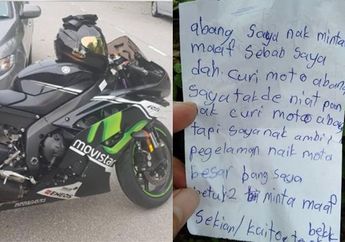 movistar
ENEOS
abang saya nak minta
maaf sebab saya
dah curi moto abang
saya tak de niat pon
nak curi moto abang
tapi saya nak ambil
pegelaman naik moto
besar bang saya
betul2 minta maaf
Sekian/